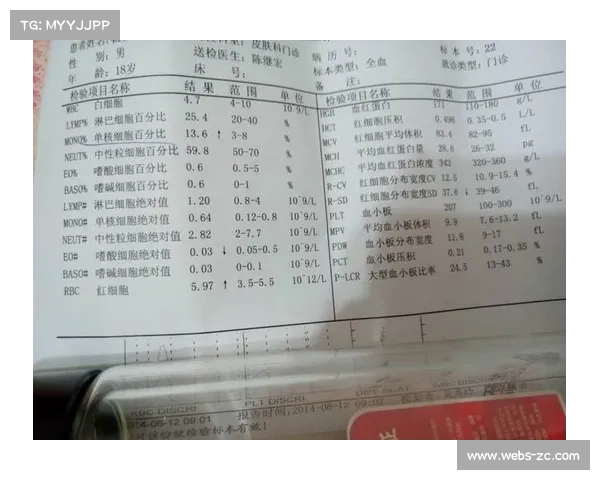 TG: MYYJJPP
患者姓名
皮肤科门诊
性 别: 男
送检医生: 陈继宏
病 历 号:
标 本 号: 22
年 龄: 18岁
床 号:
标本类型: 全血
就诊类型: 门诊
备 注:
检验项目名称 结 果 范 围 单 位
WBC 白细胞 4.7 4-10 10^9/L
LYMP% 淋巴细胞百分比 25.4 20-40 %
MONO% 单核细胞百分比 13.6 ↑ 3-8 %
NEUT% 中性粒细胞百分比 59.8 50-70 %
EO% 嗜酸细胞百分比 0.6 0.5-5 %
BASO% 嗜碱细胞百分比 0.6 0-1 %
LYMP# 淋巴细胞绝对值 1.20 0.8-4 10^9/L
MONO# 单核细胞绝对值 0.64 0.12-0.8 10^9/L
NEUT# 中性粒细胞绝对值 2.82 2-7.7 10^9/L
EO# 嗜酸细胞绝对值 0.03 ↓ 0.05-0.5 10^9/L
BASO# 嗜碱细胞绝对值 0.03 0-0.1 10^9/L
RBC 红细胞 5.97 ↑ 3.5-5.5 10^12/L
检验项目名称 结 果 范 围 单 位
HGB 血红蛋白 171 110-180 g/L
HCT 红细胞压积 0.498 0.35-0.5 L/L
MCV 红细胞平均体积 83.4 82-95 fL
MCH 平均血红蛋白量 28.6 26-32 pg
MCHC 平均血红蛋白浓度 343 320-360 g/L
R-CV 红细胞分布宽度CV 12.5 10.9-15.4 %
R-SD 红细胞分布宽度SD 37.6 ↓ 39-46 fL
PLT 血小板 207 100-300 10^9/L
MPV 平均血小板体积 9.9 7.6-13.2 fL
PDW 血小板分布宽度 11.8 9-17 fL
PCT 血小板压积 0.21 0.17-0.35 %
P-LCR 大型血小板比率 24.5 13-43 %
RBC DISCRI
PLT DISCRI
14-06-12 09:01
报告时间:2014-06-12 09:02
对该份被检验标本有效!
www.webs-zc.com